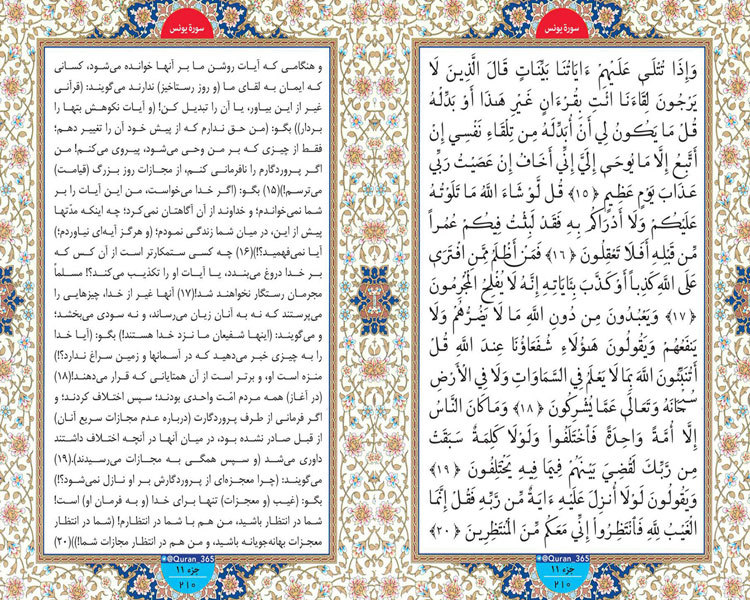 سورهٔ یونس
وَإِذَا تُتْلَىٰ عَلَيْهِمْ ءَايَاتُنَا بَيِّنَاتٍ قَالَ الَّذِينَ لَا
يَرْجُونَ لِقَاءَنَا ائْتِ بِقُرْءَانٍ غَيْرِ هَٰذَا أَوْ بَدِّلْهُ
قُلْ مَا يَكُونُ لِي أَنْ أُبَدِّلَهُ مِن تِلْقَاءِ نَفْسِي إِنْ
أَتَّبِعُ إِلَّا مَا يُوحَىٰ إِلَيَّ إِنِّي أَخَافُ إِنْ عَصَيْتُ رَبِّي
عَذَابَ يَوْمٍ عَظِيمٍ ﴿١٥﴾ قُل لَّوْ شَاءَ اللَّهُ مَا تَلَوْتُهُ
عَلَيْكُمْ وَلَا أَدْرَاكُم بِهِ فَقَدْ لَبِثْتُ فِيكُمْ عُمُراً
مِّن قَبْلِهِ أَفَلَا تَعْقِلُونَ ﴿١٦﴾ فَمَنْ أَظْلَمُ مِمَّنِ افْتَرَىٰ
عَلَى اللَّهِ كَذِباً أَوْ كَذَّبَ بِئَايَاتِهِ إِنَّهُ لَا يُفْلِحُ الْمُجْرِمُونَ
﴿١٧﴾ وَيَعْبُدُونَ مِن دُونِ اللَّهِ مَا لَا يَضُرُّهُمْ وَلَا
يَنفَعُهُمْ وَيَقُولُونَ هَٰؤُلَاءِ شُفَعَاؤُنَا عِندَ اللَّهِ قُلْ
أَتُنَبِّئُونَ اللَّهَ بِمَا لَا يَعْلَمُ فِي السَّمَاوَاتِ وَلَا فِي الْأَرْضِ
سُبْحَانَهُ وَتَعَالَىٰ عَمَّا يُشْرِكُونَ ﴿١٨﴾ وَمَا كَانَ النَّاسُ
إِلَّا أُمَّةً وَاحِدَةً فَاخْتَلَفُوا وَلَوْلَا كَلِمَةٌ سَبَقَتْ
مِن رَّبِّكَ لَقُضِيَ بَيْنَهُمْ فِيمَا فِيهِ يَخْتَلِفُونَ ﴿١٩﴾
وَيَقُولُونَ لَوْلَا أُنزِلَ عَلَيْهِ ءَايَةٌ مِّن رَّبِّهِ فَقُلْ إِنَّمَا
الْغَيْبُ لِلَّهِ فَانتَظِرُوا إِنِّي مَعَكُم مِّنَ الْمُنتَظِرِينَ ﴿٢٠﴾
@Quran_365
جزء ۱۱
۲۱۰
سورهٔ یونس
و هنگامی که آیات روشن ما بر آنها خوانده می‌شود، کسانی
که ایمان به لقای ما (و روز رستاخیز) ندارند می‌گویند: (قرآنی
غیر از این بیاور، یا آن را تبدیل کن! (و آیات نکوهش بتها را
بردار)) بگو: (من حق ندارم که از پیش خود آن را تغییر دهم؛
فقط از چیزی که بر من وحی می‌شود، پیروی می‌کنم! من
اگر پروردگارم را نافرمانی کنم، از مجازات روز بزرگ (قیامت)
می‌ترسم!)(۱۵) بگو: (اگر خدا می‌خواست، من این آیات را بر
شما نمی‌خواندم؛ و خداوند از آن آگاهتان نمی‌کرد؛ چه اینکه مدّتها
پیش از این، در میان شما زندگی نمودم؛ (و هرگز آیه‌ای نیاوردم؛)
آیا نمی‌فهمید؟!)(۱۶) چه کسی ستمکارتر است از آن کس که
بر خدا دروغ می‌بندد، یا آیات او را تکذیب می‌کند؟! مسلماً
مجرمان رستگار نخواهند شد!(۱۷) آنها غیر از خدا، چیزهایی را
می‌پرستند که نه به آنان زیان می‌رساند، و نه سودی می‌بخشد؛
و می‌گویند: (اینها شفیعان ما نزد خدا هستند!) بگو: (آیا خدا
را به چیزی خبر می‌دهید که در آسمانها و زمین سراغ ندارد؟!)
منزه است او، و برتر است از آن همتایانی که قرار می‌دهند!(۱۸)
(در آغاز) همه مردم امّت واحدی بودند؛ سپس اختلاف کردند؛ و
اگر فرمانی از طرف پروردگارت (درباره عدم مجازات سریع آنان)
از قبل صادر نشده بود، در میان آنها در آنچه اختلاف داشتند
داوری می‌شد (و سپس همگی به مجازات می‌رسیدند).(۱۹)
می‌گویند: (چرا معجزه‌ای از پروردگارش بر او نازل نمی‌شود؟!)
بگو: (غیب (و معجزات) تنها برای خدا (و به فرمان او) است!
شما در انتظار باشید، من هم با شما در انتظارم! (شما در انتظار
معجزات بهانه‌جویانه باشید، و من هم در انتظار مجازات شما!))(۲۰)
@Quran_365
جزء ۱۱
۲۱۰